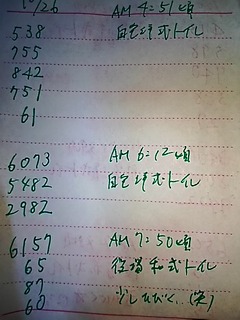 10/26
538 AM 4:51頃
755 自宅洋式トイレ
842
751
61
6073 AM 6:12頃
5482 自宅洋式トイレ
2982
6157 AM 7:50頃
65 役場和式トイレ
87 少しひびく、(笑)
60